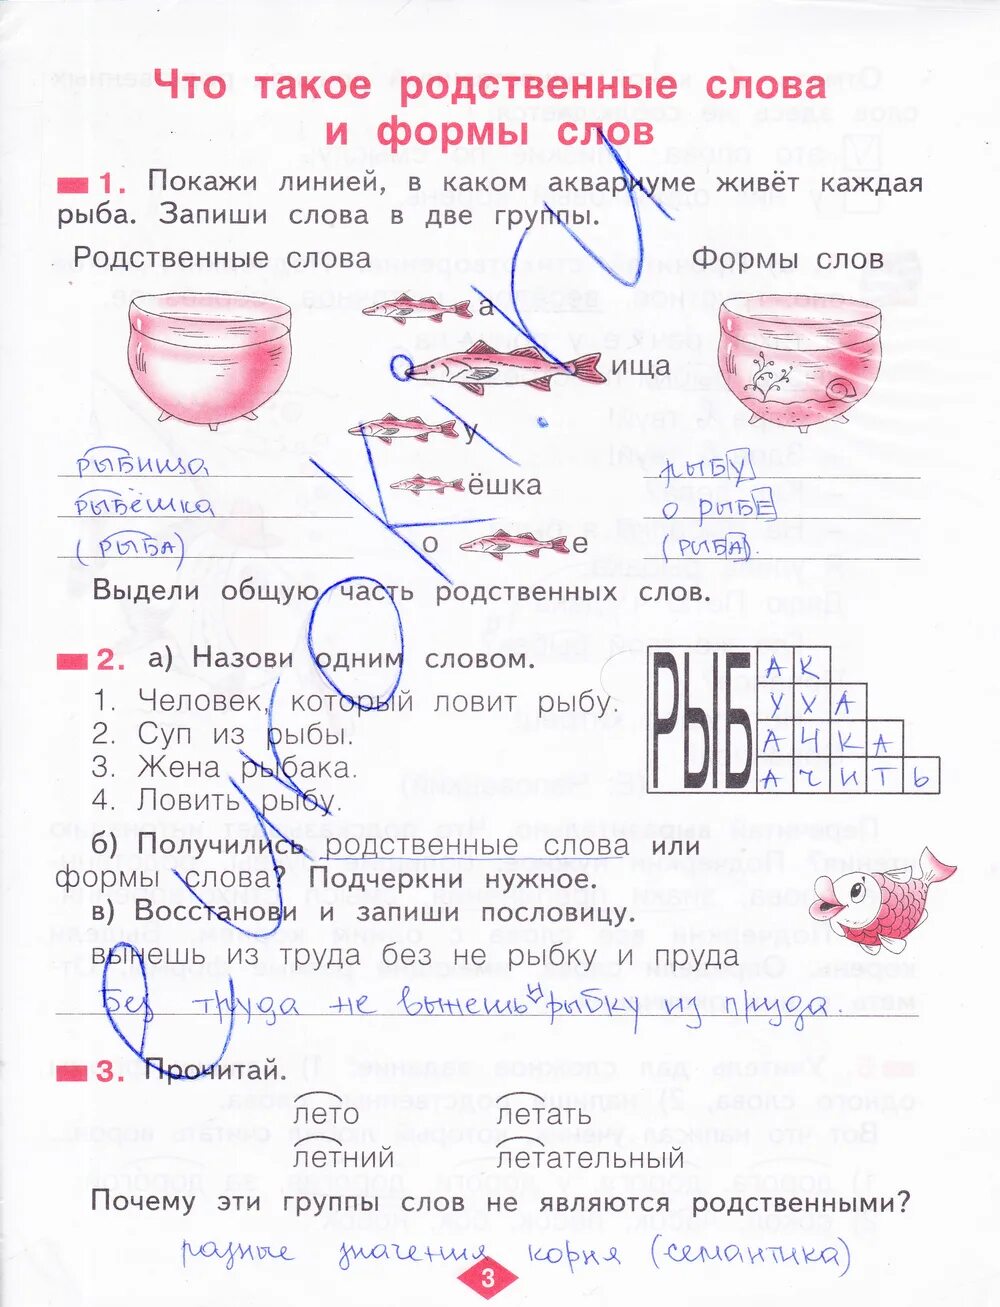 Что такое родственные слова
и формы слов
1. Покажи линией, в каком аквариуме живёт каждая
рыба. Запиши слова в две группы.
Родственные слова
Формы слов
а
ища
у
ёшка
о е
рыбища
рыбёшка
(рыба)
рыбу
о рыбе
(рыба).
Выдели общую часть родственных слов.
2. а) Назови одним словом.
1. Человек, который ловит рыбу.
2. Суп из рыбы.
3. Жена рыбака.
4. Ловить рыбу.
РЫБ
АК
УХА
АЧКА
АЧИТЬ
б) Получились родственные слова или
формы слова? Подчеркни нужное.
в) Восстанови и запиши пословицу.
вынешь из труда без не рыбку и пруда
Без труда не вынешь и рыбку из пруда.
3. Прочитай.
лето летать
летний летательный
Почему эти группы слов не являются родственными?
разные значения корня (семантика)
3